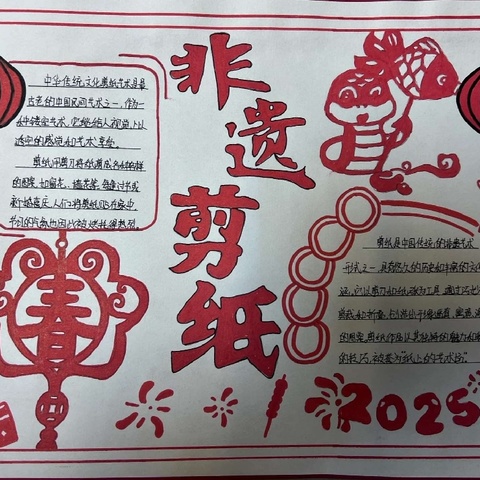 非遗剪纸
中华传统文化剪纸艺术是最
古老的中国民间艺术之一，作为一
种镂空艺术，它能给人视觉上以
透空的感觉和艺术享受。
剪纸用剪刀将纸剪成各种各样
的图案，如窗花、墙花等。每逢过节或
新婚喜庆，人们将剪纸贴在家中
节日的气氛也因此被烘托得热烈
剪纸是中国传统的非遗艺术
形式之一，具有悠久的历史和丰富的文化
运。它以剪刀和纸张为工具，通过巧
剪裁和折叠，创造出形像逼真、
的图案。剪纸作品以其独特的魅力和
的技巧，被誉为“纸上的艺术”。
春
2025